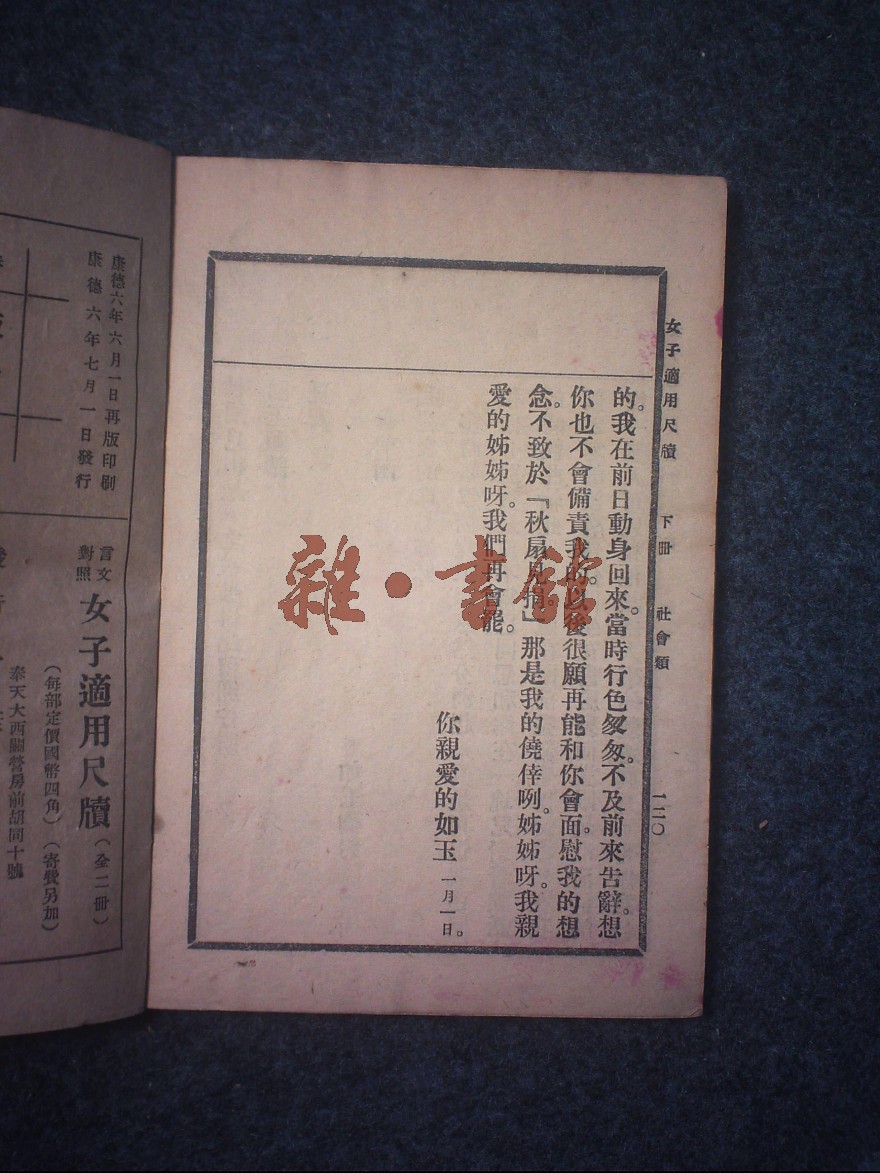 女子適用尺牘 下冊 社會類 一二〇
的。我在前日動身回來。當時行色匆匆。不及前來告辭。想
你也不會備責我的。以後很願再能和你會面。慰我的想
念。不致於「秋扇見捐」那是我的僥倖咧。姊姊呀。我親
愛的姊姊呀。我們再會罷。
你親愛的如玉 一月一日。
雜·書館
康德六年六月一日再版印刷
康德六年七月一日發行
言文對照 女子適用尺牘（全二冊）
（每部定價國幣四角）（寄費另加）
奉天大西關營房前胡同十號